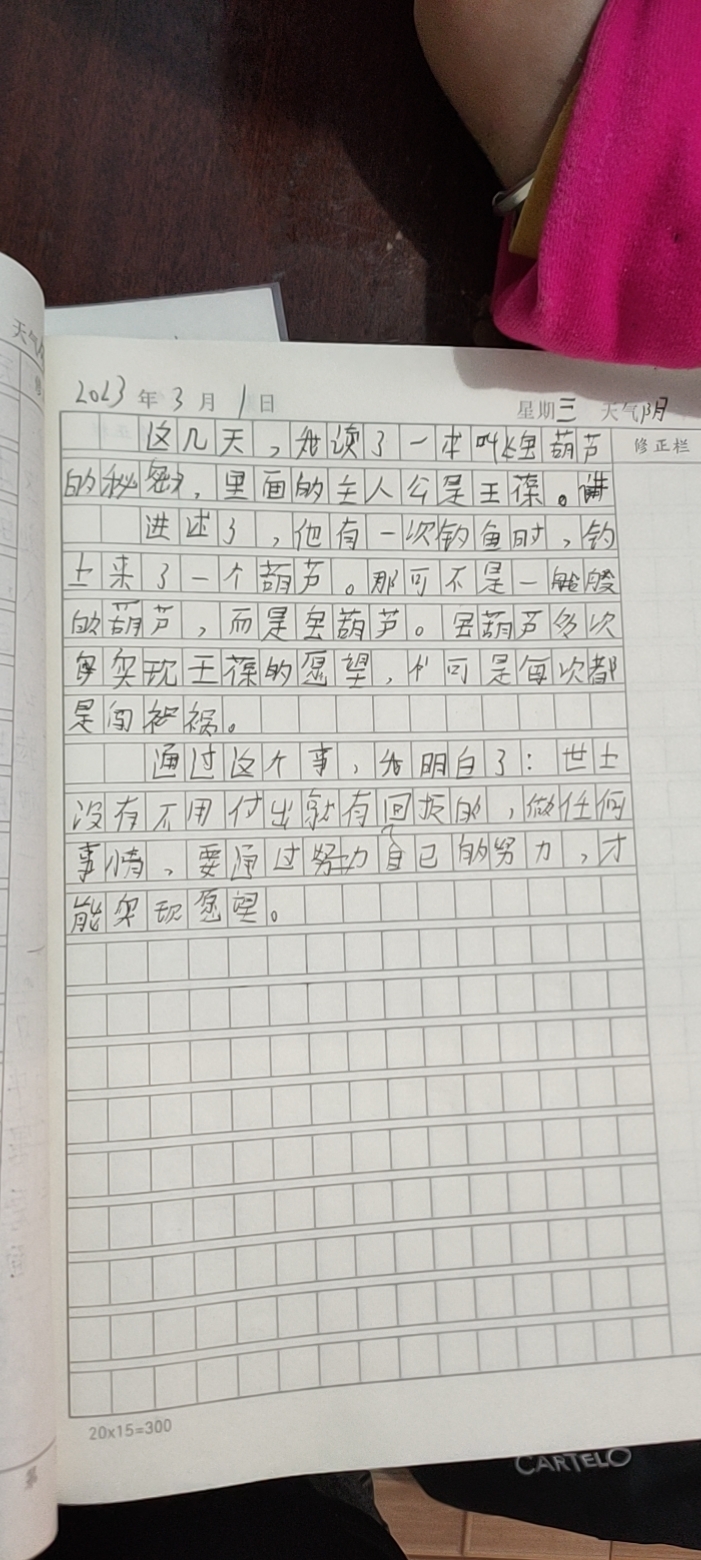 天气
2023年3月1日 星期三 天气阴
修正栏
这几天,我读了一本叫《宝葫芦
的秘密》,里面的主人公是王葆。讲
进述了,他有一次钓鱼时,钓
上来了一个葫芦。那可不是一般
的葫芦,而是宝葫芦。宝葫芦多次
实现王葆的愿望,可是每次都
是闯祸。
通过这个事,我明白了:世上
没有不用付出就有回报的,做任何
事情,要通过努力自己的努力,才
能实现愿望。
20x15=300
CARTELO